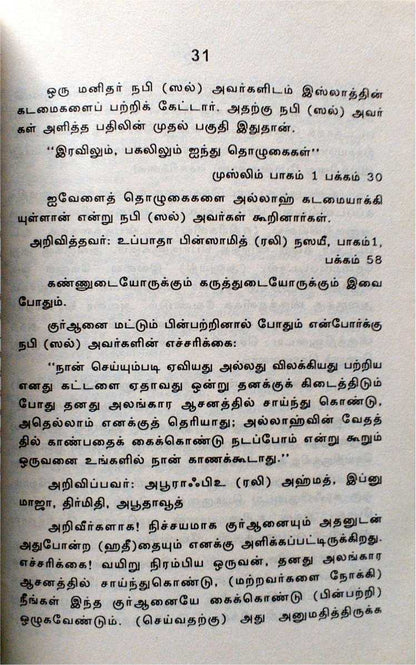 31
ஒரு மனிதர் நபி (ஸல்) அவர்களிடம் இஸ்லாத்தின்
கடமைகளைப் பற்றிக் கேட்டார். அதற்கு நபி (ஸல்) அவர்
கள் அளித்த பதிலின் முதல் பகுதி இதுதான்.
“இரவிலும், பகலிலும் ஐந்து தொழுகைகள்”
முஸ்லிம் பாகம் 1 பக்கம் 30
ஐவேளைத் தொழுகைகளை அல்லாஹ் கடமையாக்கி
யுள்ளான் என்று நபி (ஸல்) அவர்கள் கூறினார்கள்.
அறிவித்தவர்: உப்பாதா பின்ஸாமித் (ரலி) நஸயீ, பாகம்1,
பக்கம் 58
கண்ணுடையோருக்கும் கருத்துடையோருக்கும் இவை
போதும்.
குர்ஆனை மட்டும் பின்பற்றினால் போதும் என்போர்க்கு
நபி (ஸல்) அவர்களின் எச்சரிக்கை:
“நான் செய்யும்படி ஏவியது அல்லது விலக்கியது பற்றிய
எனது கட்டளை ஏதாவது ஒன்று தனக்குக் கிடைத்திடும்
போது தனது அலங்கார ஆசனத்தில் சாய்ந்து கொண்டு,
அதெல்லாம் எனக்குத் தெரியாது; அல்லாஹ்வின் வேதத்
தில் காண்பதைக் கைக்கொண்டு நடப்போம் என்று கூறும்
ஒருவனை உங்களில் நான் காணக்கூடாது.”
அறிவிப்பவர்: அபூராஃபிஉ (ரலி) அஹ்மத், இப்னு
மாஜா, திர்மிதி, அபூதாவூத்
அறிவீர்களாக! நிச்சயமாக குர்ஆனையும் அதனுடன்
அதுபோன்ற (ஹதீ)தையும் எனக்கு அளிக்கப்பட்டிருக்கிறது.
எச்சரிக்கை! வயிறு நிரம்பிய ஒருவன், தனது அலங்கார
ஆசனத்தில் சாய்ந்துகொண்டு, (மற்றவர்களை நோக்கி)
நீங்கள் இந்த குர்ஆனையே கைக்கொண்டு (பின்பற்றி)
ஒழுகவேண்டும். (செய்வதற்கு) அது அனுமதித்திருக்க